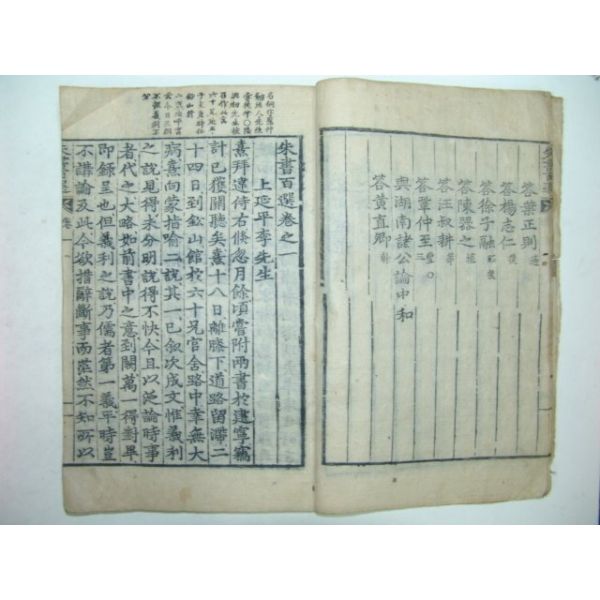 答葉正則 適
答楊志仁 復
答徐子融 昭然
答陳器之 埴
答汪叔耕 莘
答鞏仲至 豐○三
與湖南諸公論中和
答黃直卿 榦
朱書百選卷之一
上延平李先生
熹拜違侍右倐忽月餘頃嘗附兩書於建寧竊
計已獲關聽矣熹十八日離膝下道路留滯二
十四日到鈆山館於六十兄官舍路中幸無大
病熹向蒙指喻二說其一已叙次成文惟義利
之說見得未分明說得不快今且以泛論時事
者代之大略如前書中之意到闕萬一得對畢
即錄呈也但義利之說乃儒者第一義平時豈
不講論及此今欲措辭斷事而茫然不知所以